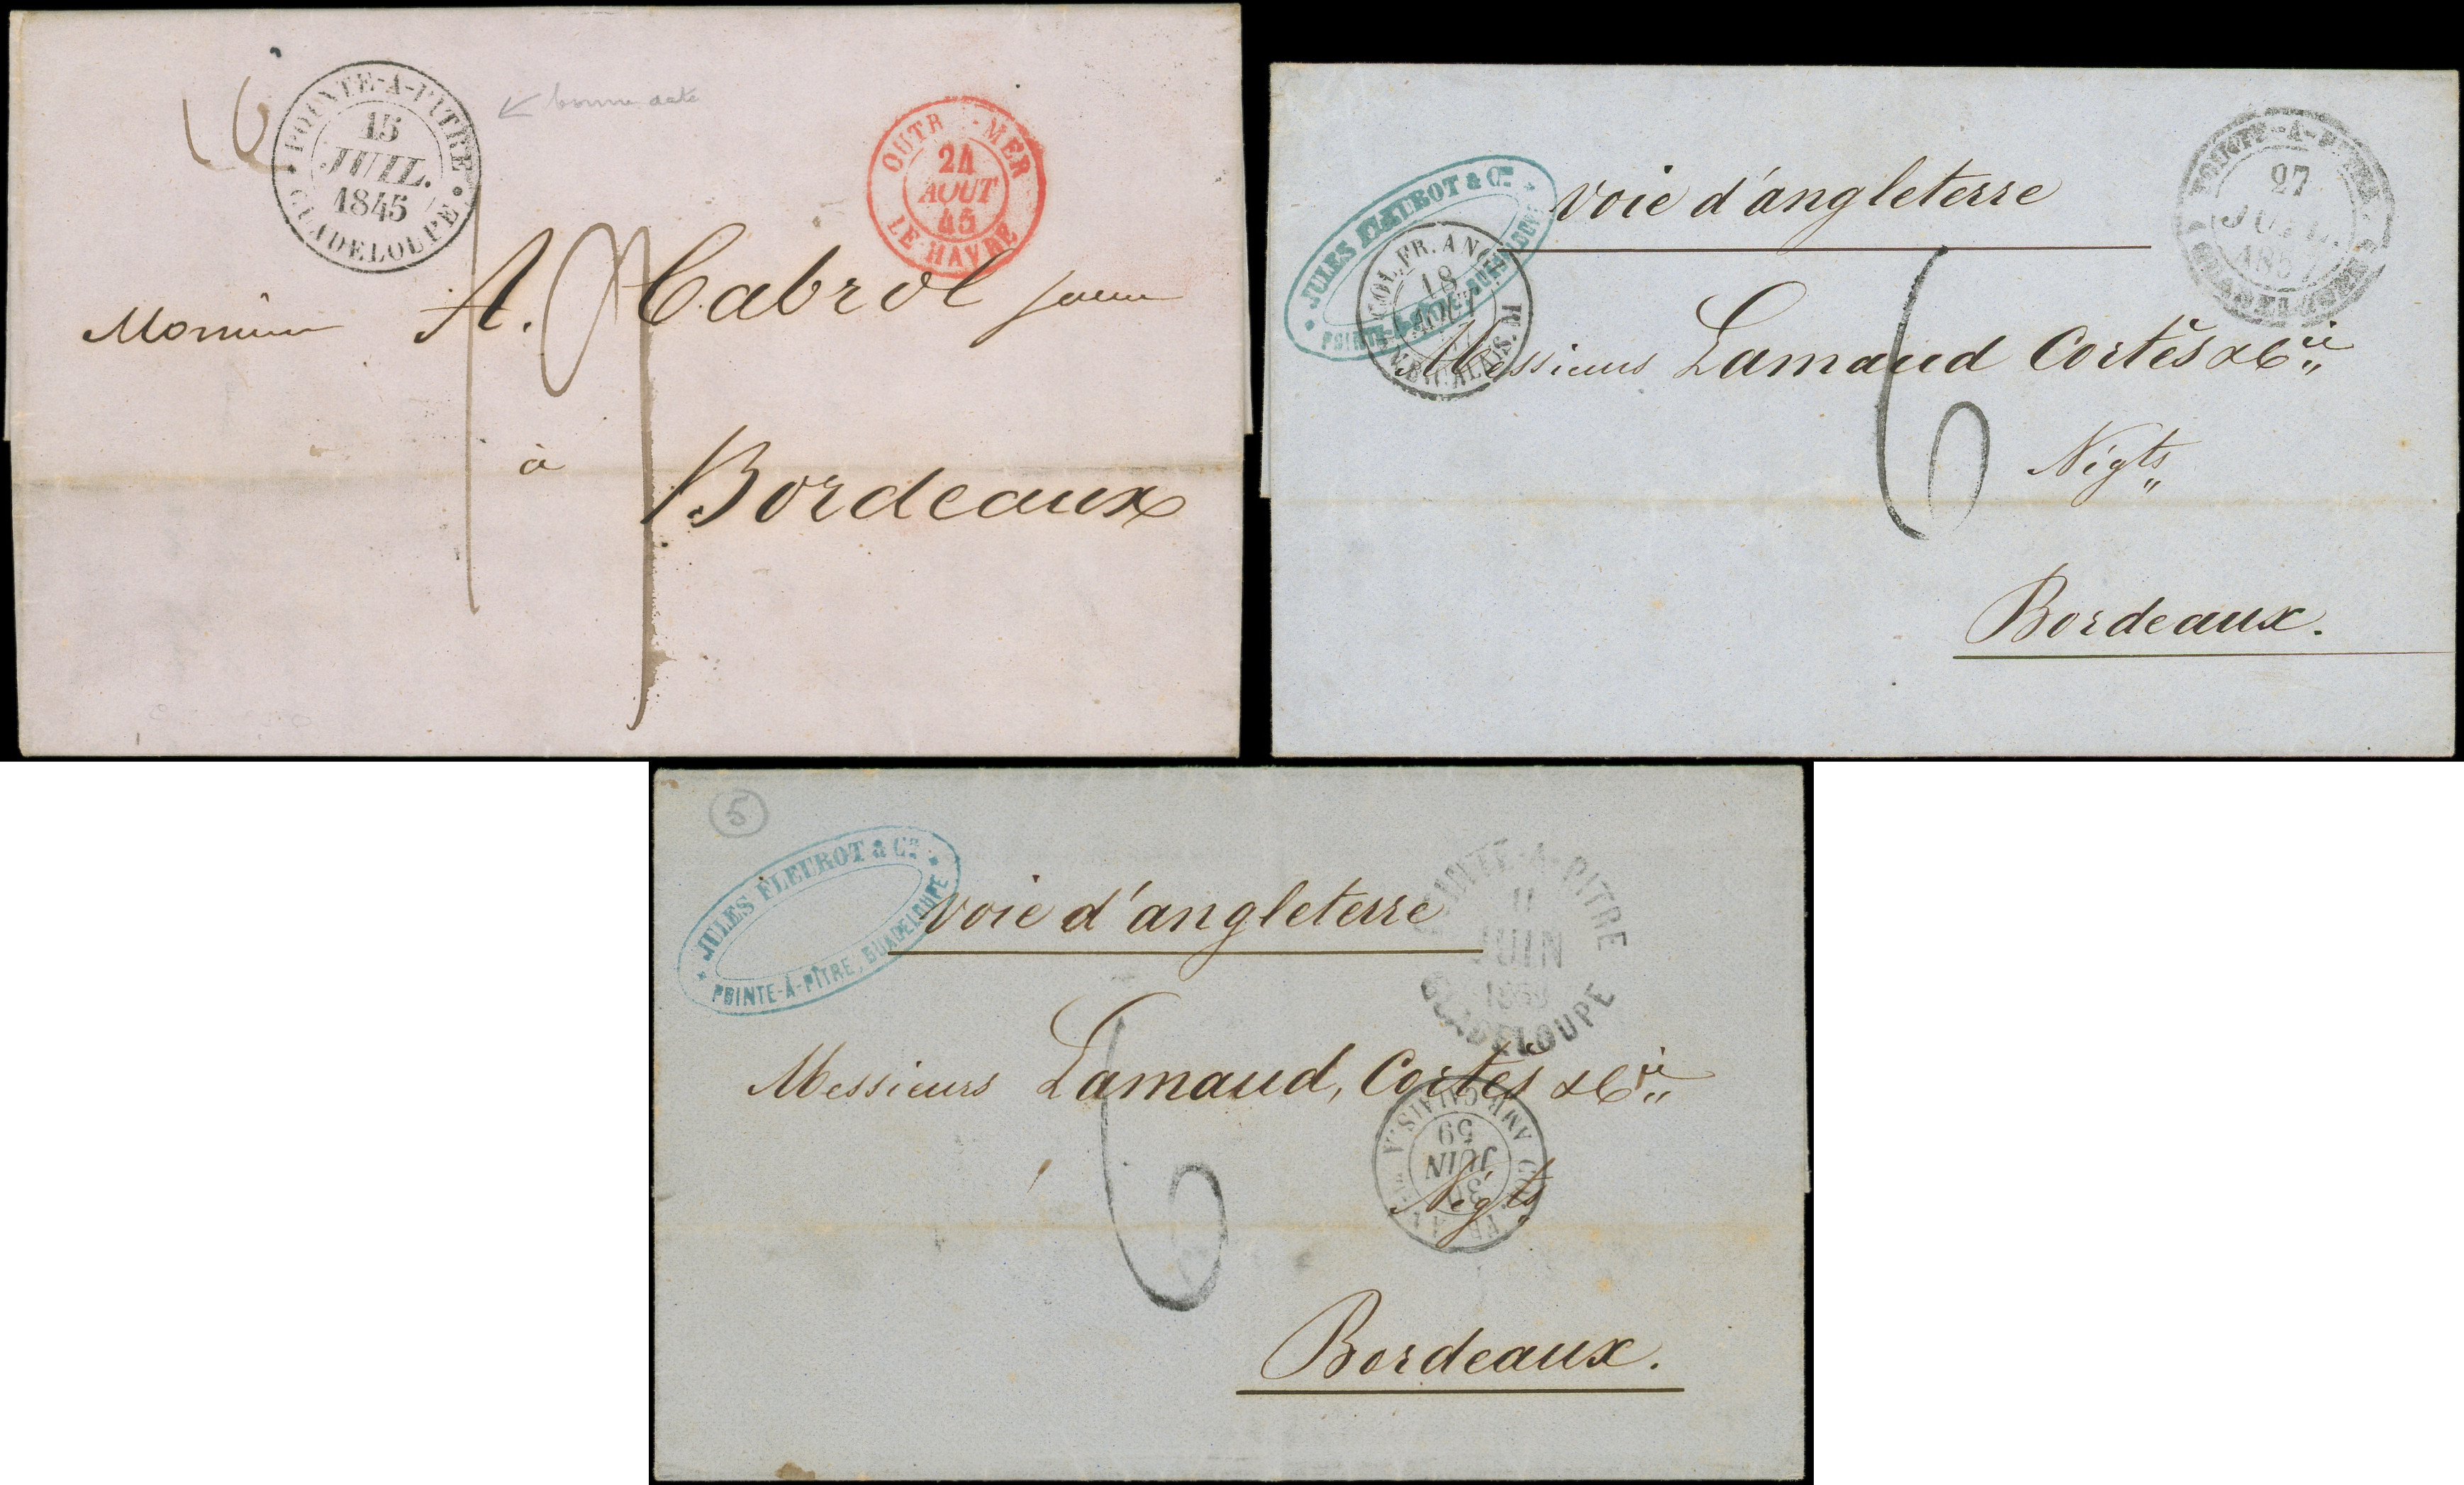 16
POINTE-A-PITRE
15
JUIL.
1845
GUADELOUPE
bonne date
OUTR -MER
24
AOUT
45
LE HAVRE
Monsieur A. Cabrol jeune
à
Bordeaux
JULES FLEUROT & Cie
POINTE-À-PITRE, GUADELOUPE
voie d'angleterre
POINTE-A-PITRE
27
JUIL.
185
GUADELOUPE
COL. FR. ANG.
18
AOUT
AMB. CALAIS
Messieurs Lamaud Cortès & Cie
6
Négts
Bordeaux.
5
JULES FLEUROT & Cie
POINTE-À-PITRE, GUADELOUPE
voie d'angleterre
POINTE-A-PITRE
11
JUIN
1859
GUADELOUPE
Messieurs Lamaud, Cortès & Cie
6
AMB. CALAIS. A
30
JUIN
59
Négts
Bordeaux.